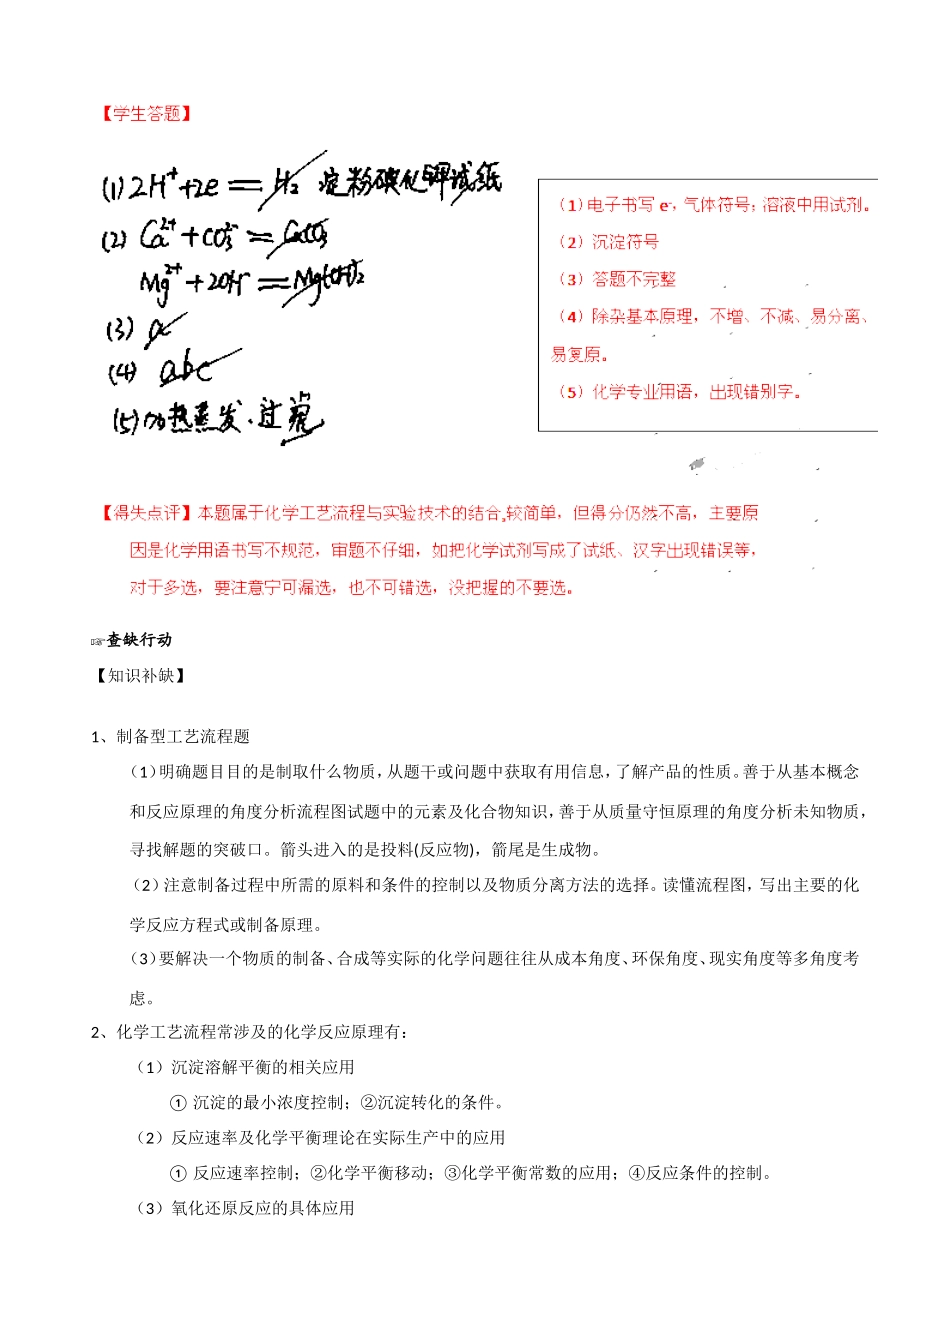 【学生答题】
(1) 2H⁺+2e=H₂ 淀粉碘化钾试纸
(2) Ca²⁺+CO₃²⁻=CaCO₃
Mg²⁺+2OH⁻=Mg(OH)₂
(3) a
(4) abc
(5) 加热蒸发、过
（1）电子书写 e-，气体符号；溶液中用试剂。
（2）沉淀符号
（3）答题不完整
（4）除杂基本原理，不增、不减、易分离、
易复原。
（5）化学专业用语，出现错别字。
【得失点评】本题属于化学工艺流程与实验技术的结合,较简单，但得分仍然不高，主要原
因是化学用语书写不规范，审题不仔细，如把化学试剂写成了试纸、汉字出现错误等，
对于多选，要注意宁可漏选，也不可错选，没把握的不要选。
☞查缺行动
【知识补缺】
1、制备型工艺流程题
（1）明确题目目的是制取什么物质，从题干或问题中获取有用信息，了解产品的性质。善于从基本概念
和反应原理的角度分析流程图试题中的元素及化合物知识，善于从质量守恒原理的角度分析未知物质，
寻找解题的突破口。箭头进入的是投料(反应物)，箭尾是生成物。
（2）注意制备过程中所需的原料和条件的控制以及物质分离方法的选择。读懂流程图，写出主要的化
学反应方程式或制备原理。
（3）要解决一个物质的制备、合成等实际的化学问题往往从成本角度、环保角度、现实角度等多角度考
虑。
2、化学工艺流程常涉及的化学反应原理有：
（1）沉淀溶解平衡的相关应用
① 沉淀的最小浓度控制；②沉淀转化的条件。
（2）反应速率及化学平衡理论在实际生产中的应用
① 反应速率控制；②化学平衡移动；③化学平衡常数的应用；④反应条件的控制。
（3）氧化还原反应的具体应用